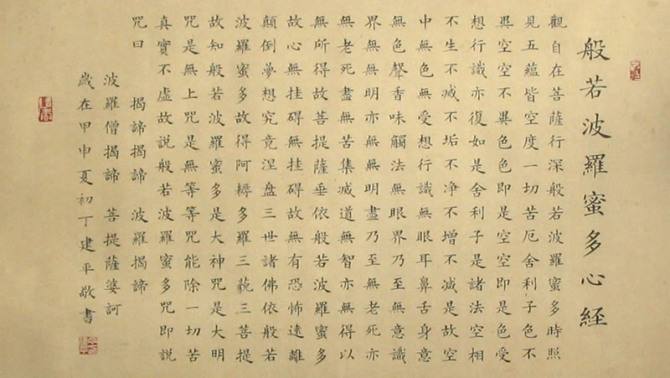 般若波羅蜜多心経
觀自在菩薩行深般若波羅蜜多時照
見五蘊皆空度一切苦厄舍利子色不
異空空不異色色即是空空即是色受
想行識亦復如是舍利子是諸法空相
不生不滅不垢不净不增不减是故空
中無色無受想行識無眼耳鼻舌身意
無色聲香味觸法無眼界乃至無意識
界無無明亦無無明盡乃至無老死亦
無老死盡無苦集滅道無智亦無得以
無所得故菩提薩垂依般若波羅蜜多
故心無挂碍無挂碍故無有恐怖遠離
顛倒夢想究竟涅盘三世諸佛依般若
波羅蜜多故得阿耨多羅三藐三菩提
故知般若波羅蜜多是大神咒是大明
咒是無上咒是無等等咒能除一切苦
真實不虚故説般若波羅蜜多咒即説
咒曰 揭諦揭諦 波羅揭諦
波羅僧揭諦 菩提薩婆訶
歲在甲申夏初丁建平敬書